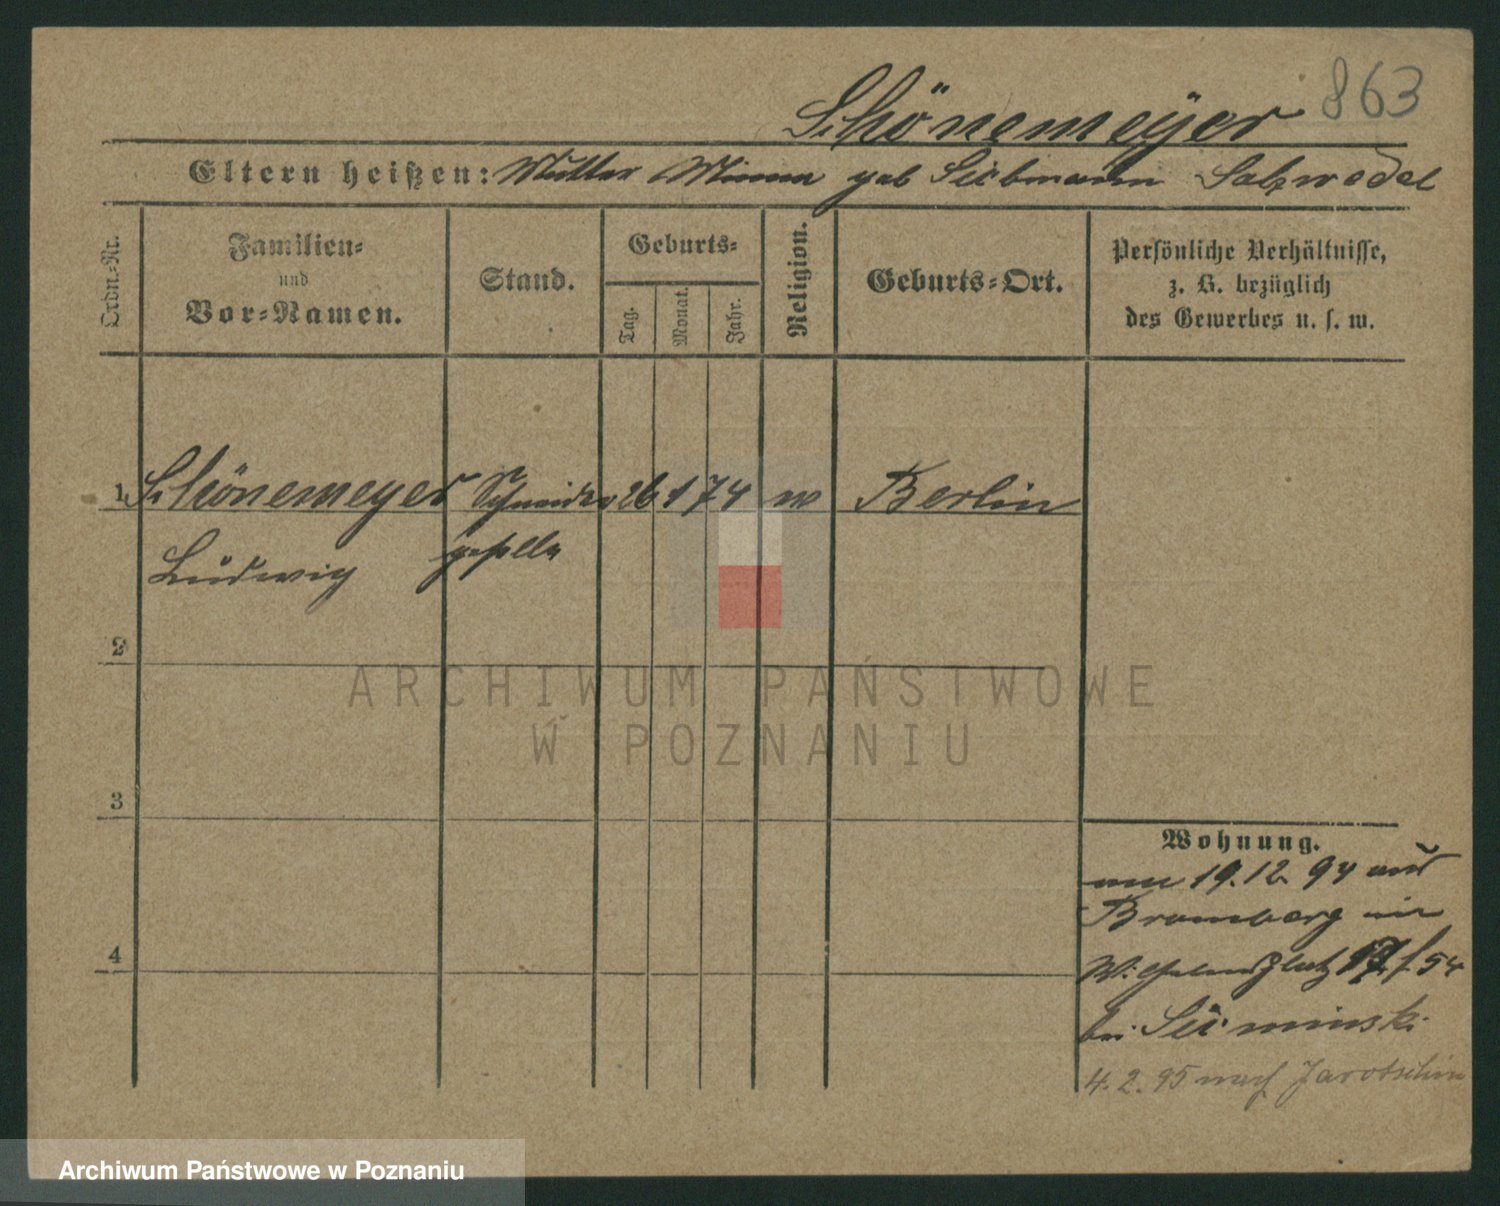 Schönemeyer 863
Eltern heißen: Mutter Minna geb Siebmann Salzwedel
Ordn.-Nr.
Familien-
und
Vor-Namen.
Stand.
Geburts-
Tag.
Monat.
Jahr.
Religion.
Geburts-Ort.
Persönliche Verhältnisse,
z. B. bezüglich
des Gewerbes u. s. w.
1 Schönemeyer Schneider 26 1 74 Berlin
Ludwig geselle
2
3
4
Wohnung.
am 19.12.94 aus
Bromberg in
Wilhelmsplatz 17 f. 54
bei
4. 2. 95 nach Jarotschin
ARCHIWUM PAŃSTWOWE
W POZNANIU
Archiwum Państwowe w Poznaniu